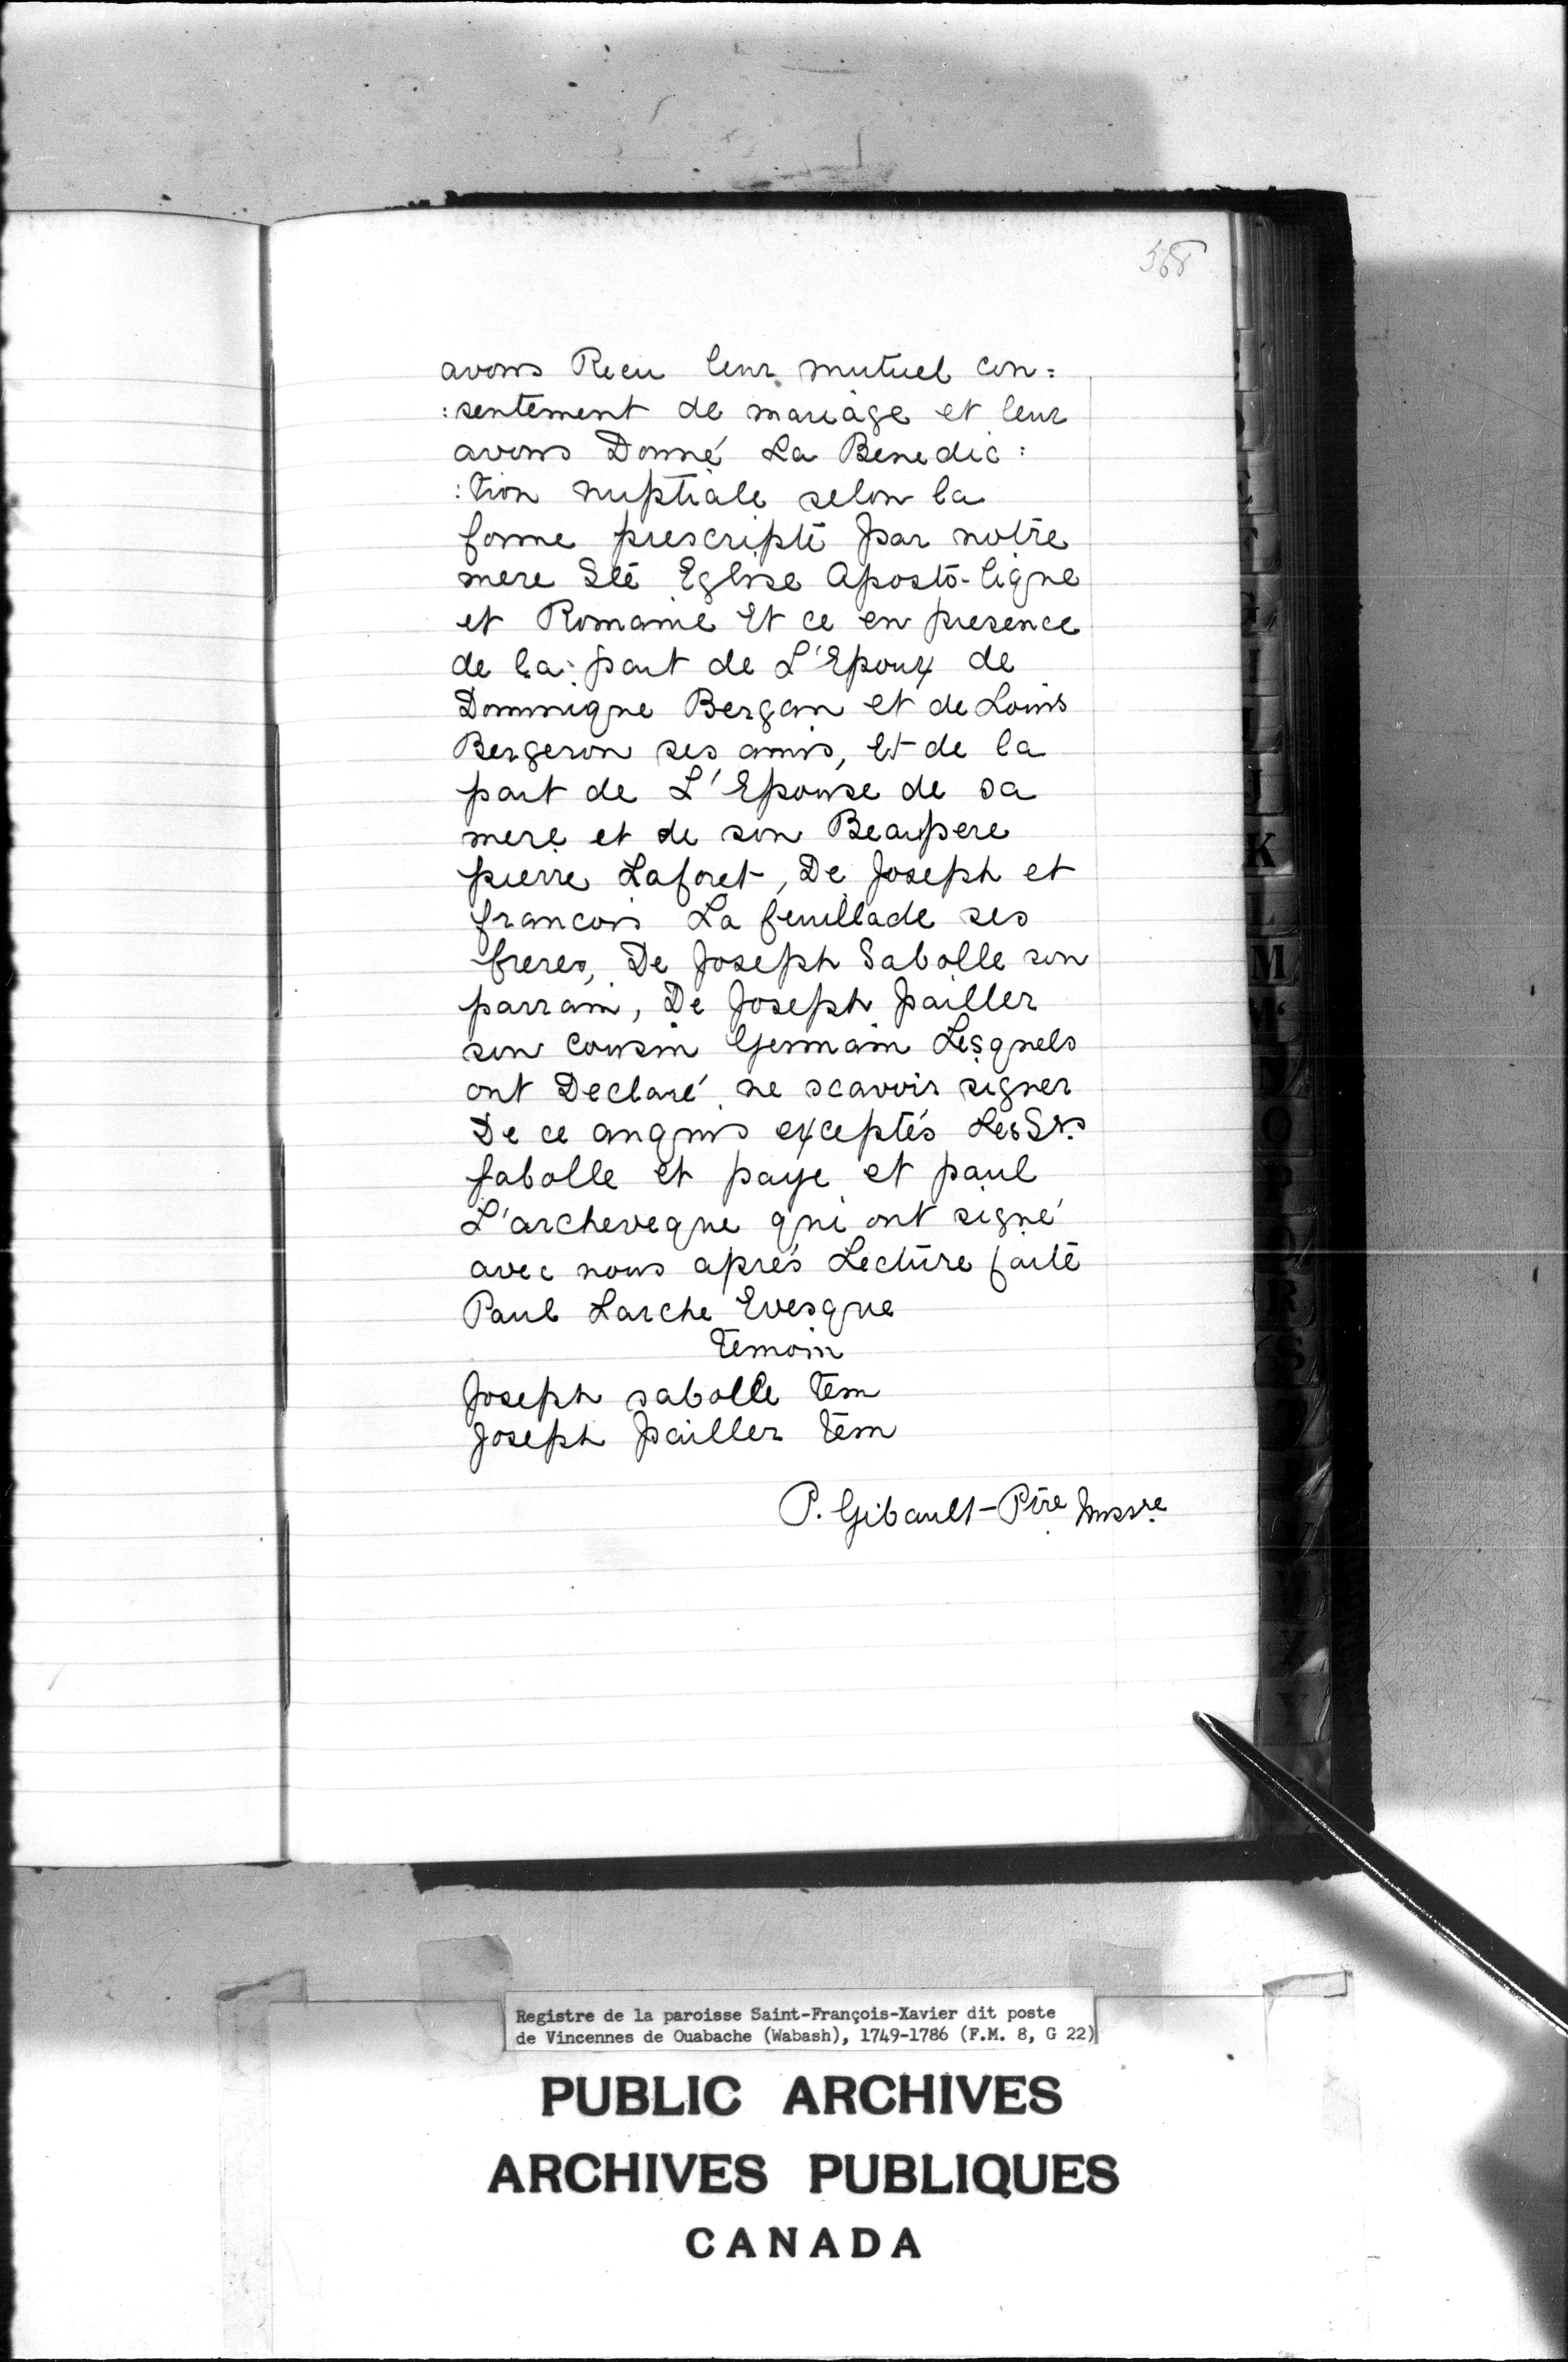 368
avons Recu leur mutuel con=
:sentement de mariage et leur
avons Donné La Benedic:
:tion nuptiale selon la
forme prescripte par notre
mere Ste Eglise Aposto-lique
et Romaine Et ce en presence
de la part de L'Epoux de
Dominique Bergan et de Louis
Bergeron ses amis, Et de la
part de L'Epouse de sa
mere et de son Beaupere
pierre Laforet, De Joseph et
francois La feuillade ses
freres, De Joseph Sabolle son
parrain, De Joseph pailler
son Cousin Germain Lesquels
ont Declaré ne scavoir signer
De ce anquis exceptés Les Srs
sabolle et paye et paul
L'archeveque qui ont signé
avec nous aprés Lecture faite
Paul Larche Evesque
temoin
Joseph sabolle tem
Joseph pailler tem
P. Gibault-Ptre Missre
K
L
M
O
P
R
S
Y
Registre de la paroisse Saint-François-Xavier dit poste
de Vincennes de Ouabache (Wabash), 1749-1786 (F.M. 8, G 22)
PUBLIC ARCHIVES
ARCHIVES PUBLIQUES
CANADA